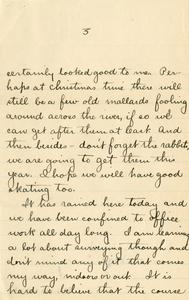 5
certainly looked good to me. Per-
haps at Christmas time there will
still be a few old mallards fooling
around across the river, if so we
can get after them at last. And
then besides - don't forget the rabbits,
we are going to get them this
year. I hope we will have good
skating too.
It has rained here today and
we have been confined to office
work all day long. I am learning
a lot about surveying though and
don't mind any of it that comes
my way, indoors or out. It is
hard to believe that the course